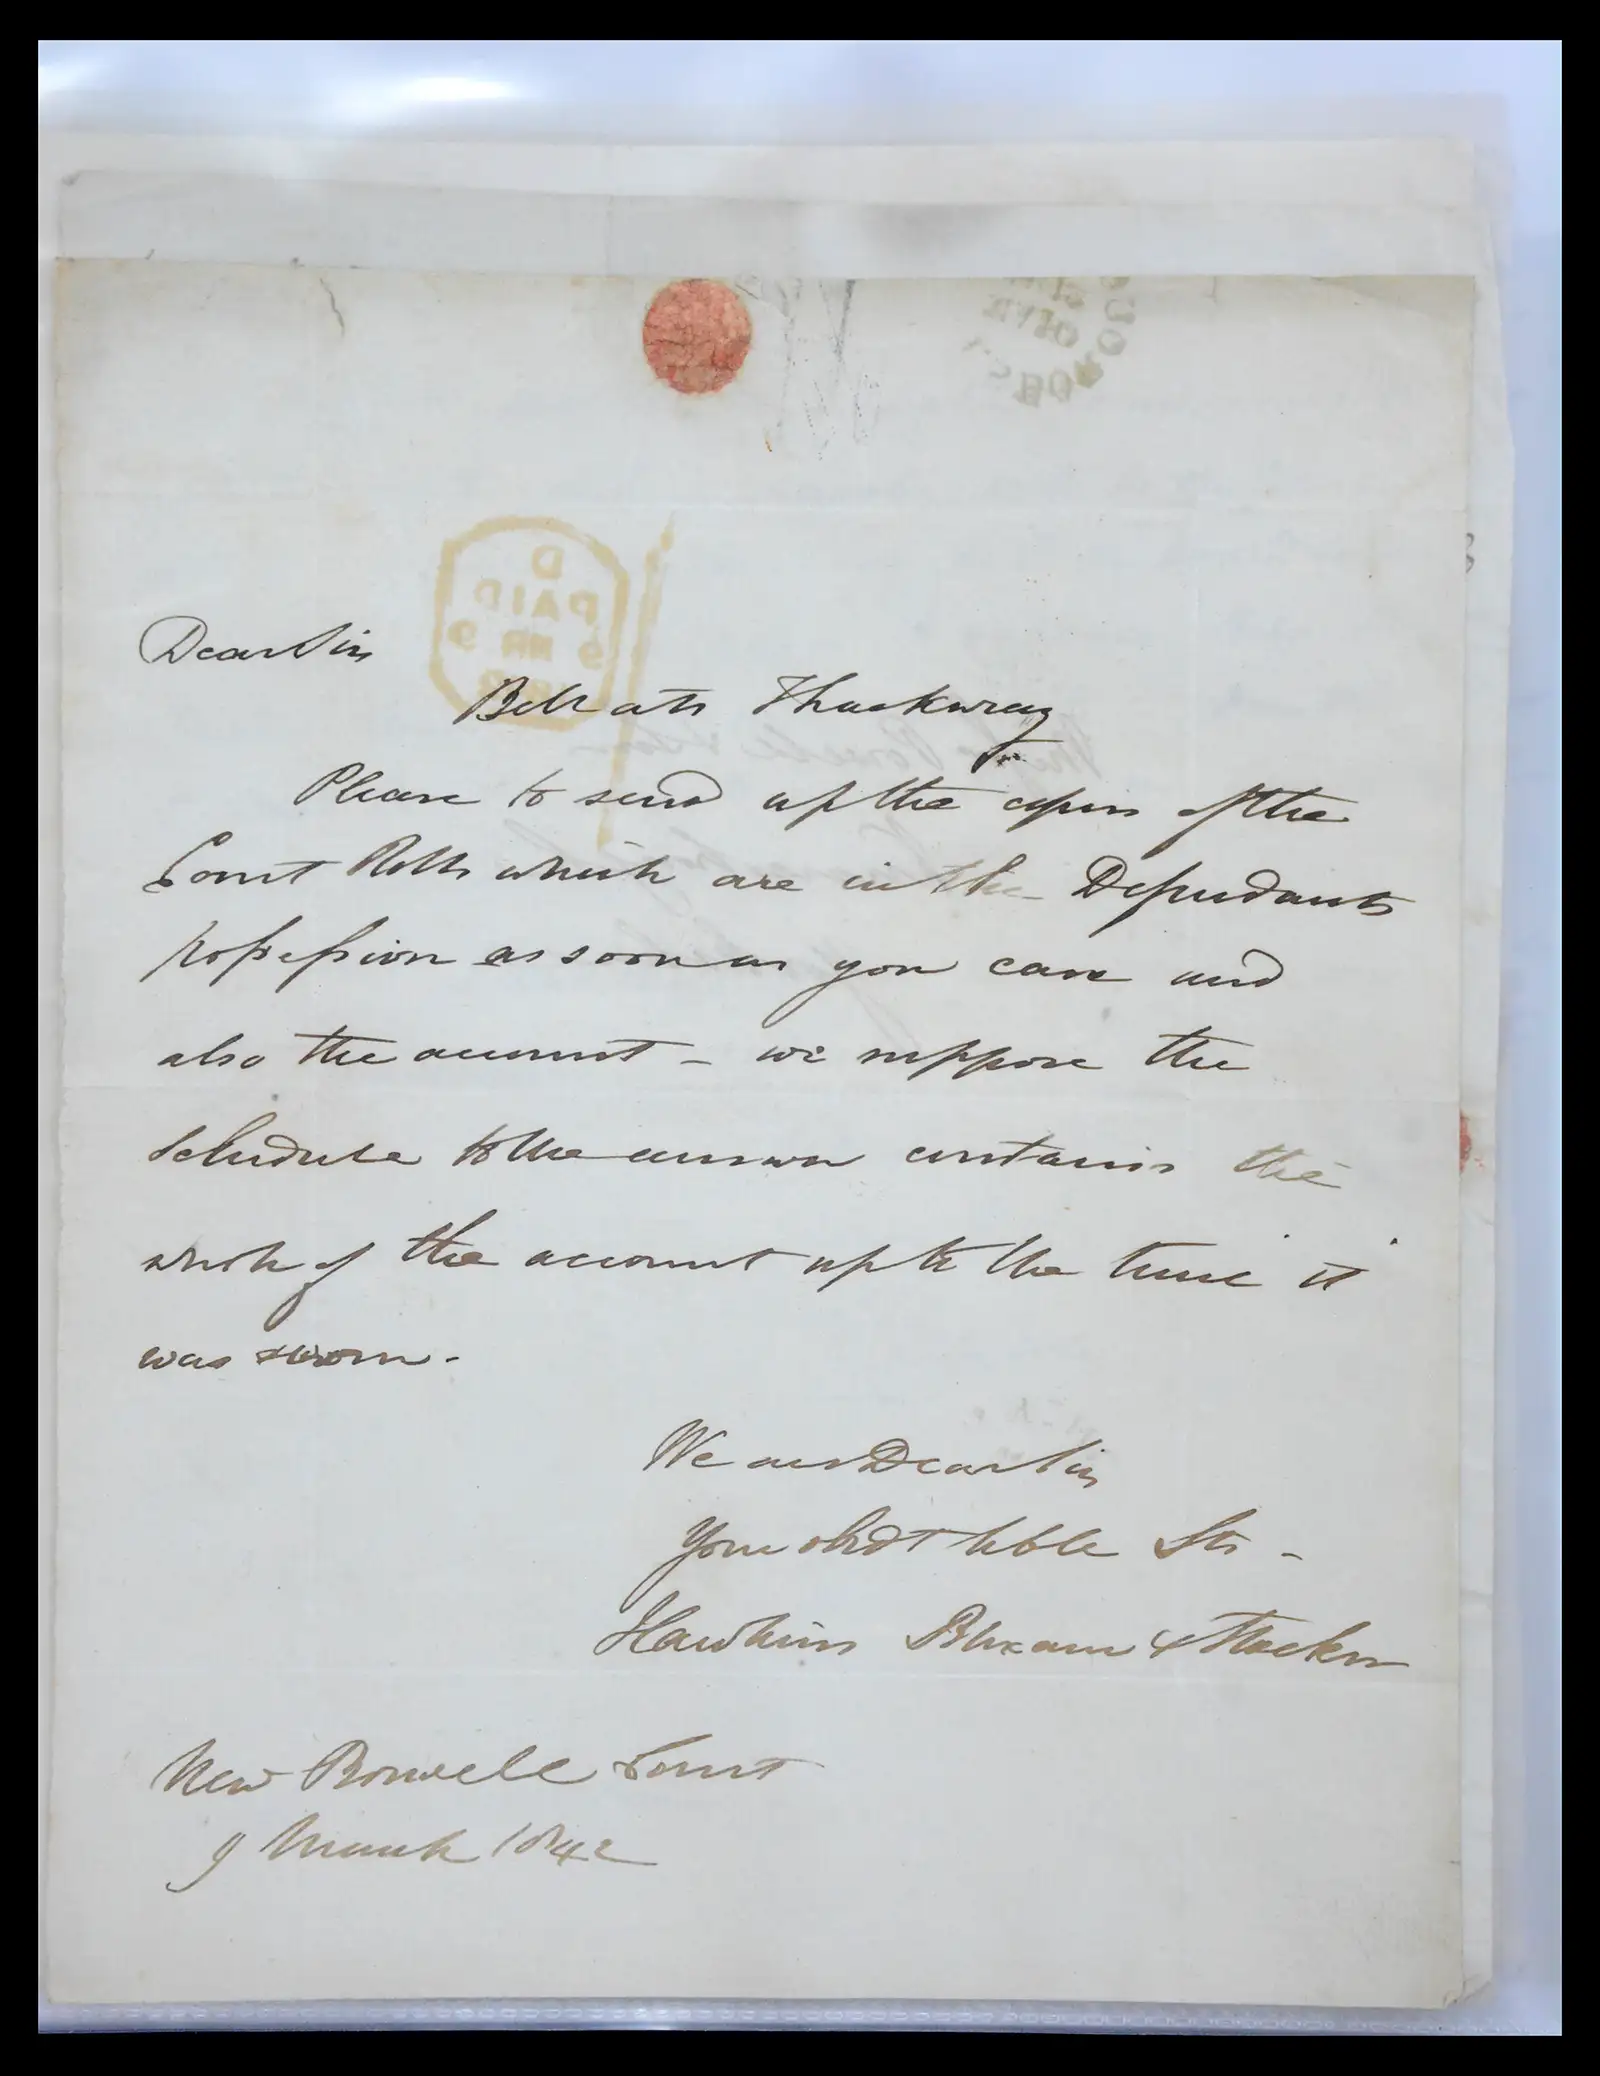 Dear Sir
Bell ats Thackwray
Please to send up the copies of the
Court Rolls which are in the Defendants
possession as soon as you can and
also the account – we suppose the
schedule to the answer contains the
whole of the account up to the time it
was sworn –
We are Dear Sir
Your obdt hble Sts –
Hawkins Bloxam & Stocker
New Boswell Court
9 March 1842
D
PAID
9 MR 9